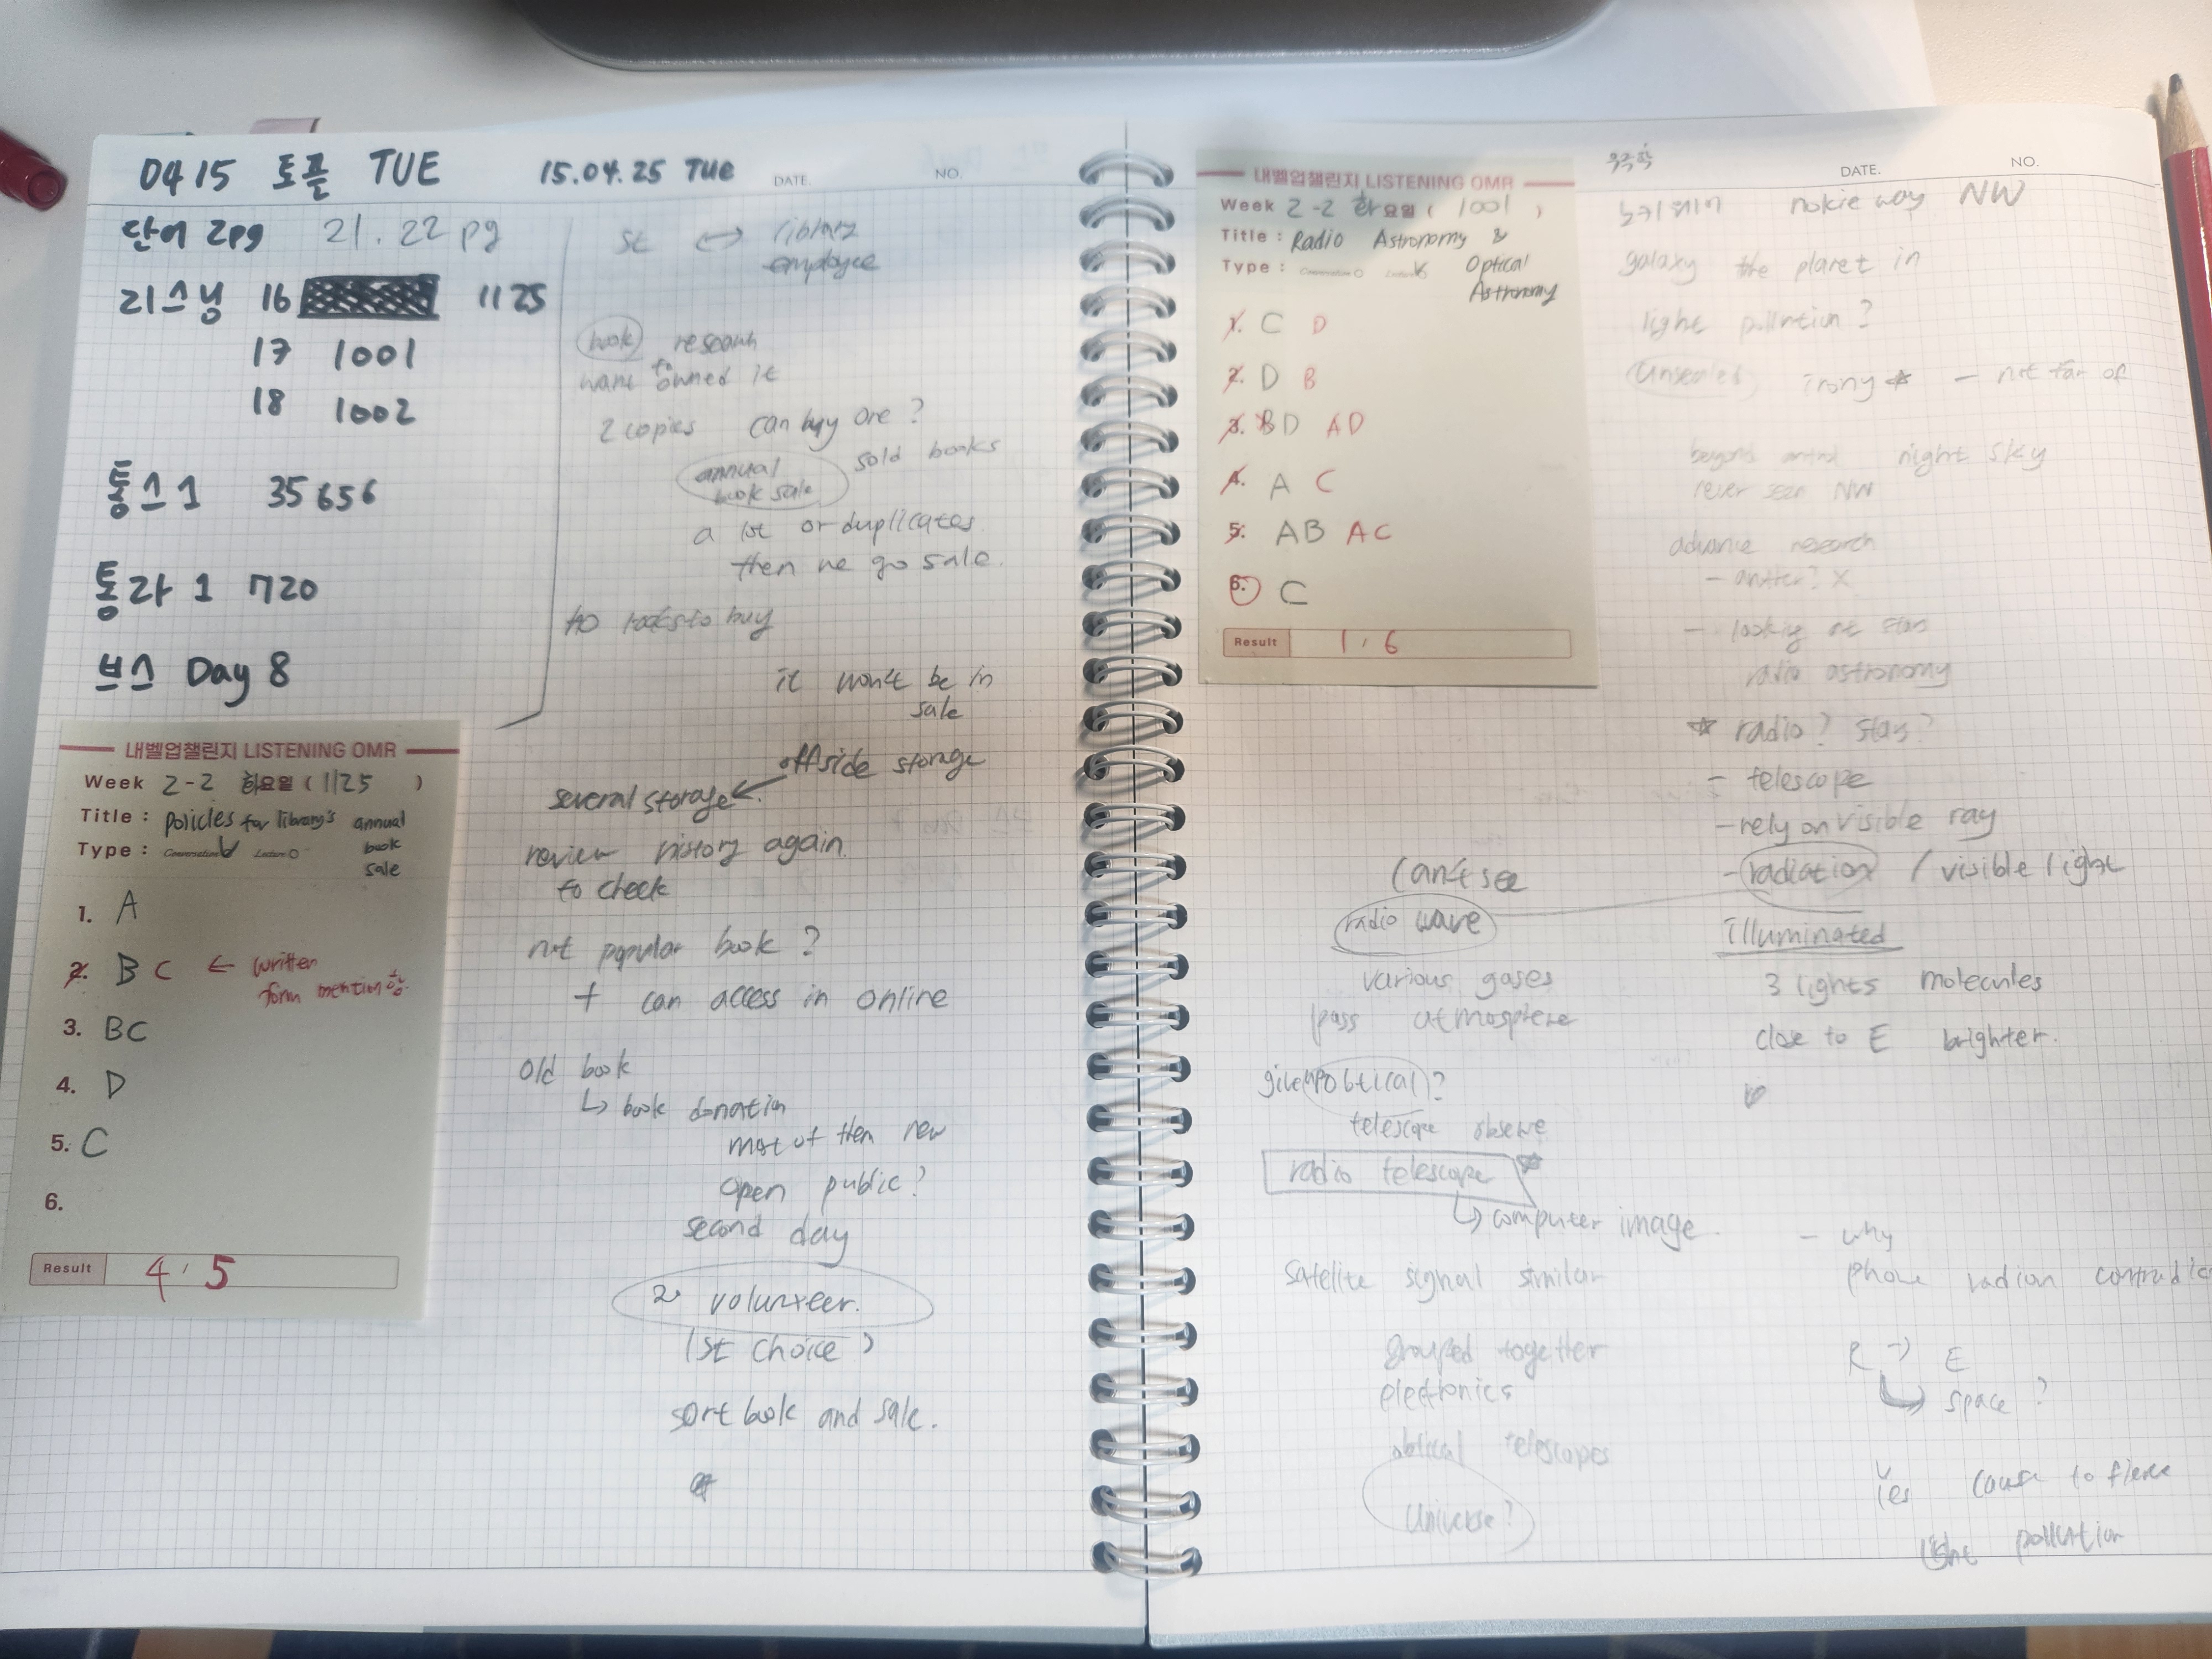 0415 토플 TUE
15.04.25 TUE
DATE.
NO.
단어 2pg 21. 22 pg
리스닝 16 1125
17 1001
18 1002
통스1 35656
통라 1 720
브스 Day 8
내벨업챌린지 LISTENING OMR
Week 2-2 화요일 (1125)
Title : policies for library's annual book sale
Type : Conversation Lecture
1. A
2. B C ← written form mention
3. BC
4. D
5. C
6.
Result 4 / 5
St ↔ library employee
book research
want to owned it
2 copies can buy one?
annual book sale
sold books
a 1st or duplicates
then we go sale.
to buy
it won't be in sale
offside storage
several storage
review history again
to check
not popular book?
+ can access in online
old book
↳ book donation
most of them new
open public?
second day
2 volunteer.
1st choice
sort book and sale.
내벨업챌린지 LISTENING OMR
Week 2-2 화요일 ( 1001 )
Title : Radio Astronomy & Optical Astronomy
Type : Conversation Lecture
1. C D
2. D B
3. BD AD
4. A C
5. AB AC
6. C
Result 1 / 6
우주학
DATE.
NO.
노키웨이 nokie way NW
galaxy the planet in
light pollution?
irony ☆ - not far of
beyond night sky
never seen NW
advance research
- matter? X
- looking at stars
radio astronomy
☆ radio? stay?
- telescope
- rely on visible ray
- radiation / visible light
can't see
radio wave
illuminated
various gases
pass atmosphere
3 lights molecules
close to E brighter.
give up obtical?
telescope observe
radio telescope ☆
↳ computer image.
satelite signal similar
- why
phone radion
grouped together
electronics
R → E
space ?
obtical telescopes
universe?
Yes cause to
light pollution